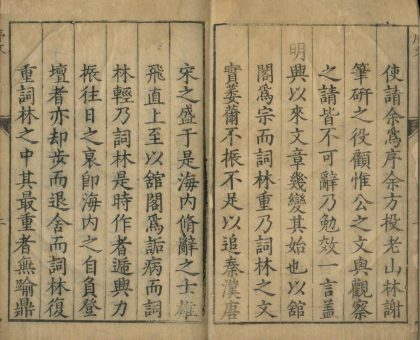 使請余為序余方投老山林謝
筆研之役顧惟公之文與觀察
之請皆不可辭乃勉效一言蓋
明興以來文章幾變其始也以舘
閣為宗而詞林重乃詞林之文
實萎薾不振不足以追秦漢唐
宋之盛于是海內脩辭之士雄
飛直上至以舘閣為詬病而詞
林輕乃詞林是時作者遞興力
振往日之衰即海內之自負登
壇者亦却步而退舍而詞林復
重詞林之中其最重者無踰鼎